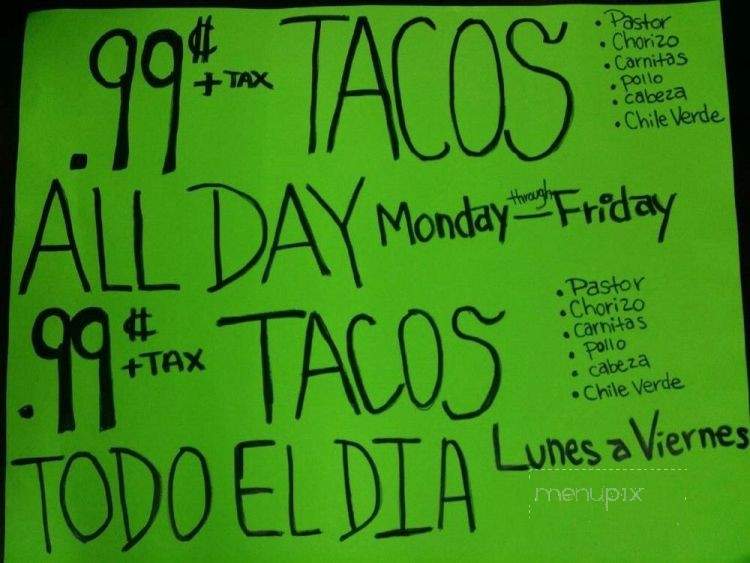 .99¢ + TAX TACOS
• Pastor
• Chorizo
• Carnitas
• pollo
• cabeza
• Chile Verde
ALL DAY Monday through Friday
.99¢ +TAX TACOS
• Pastor
• Chorizo
• Carnitas
• pollo
• cabeza
• Chile Verde
TODO EL DIA Lunes a Viernes
menupix